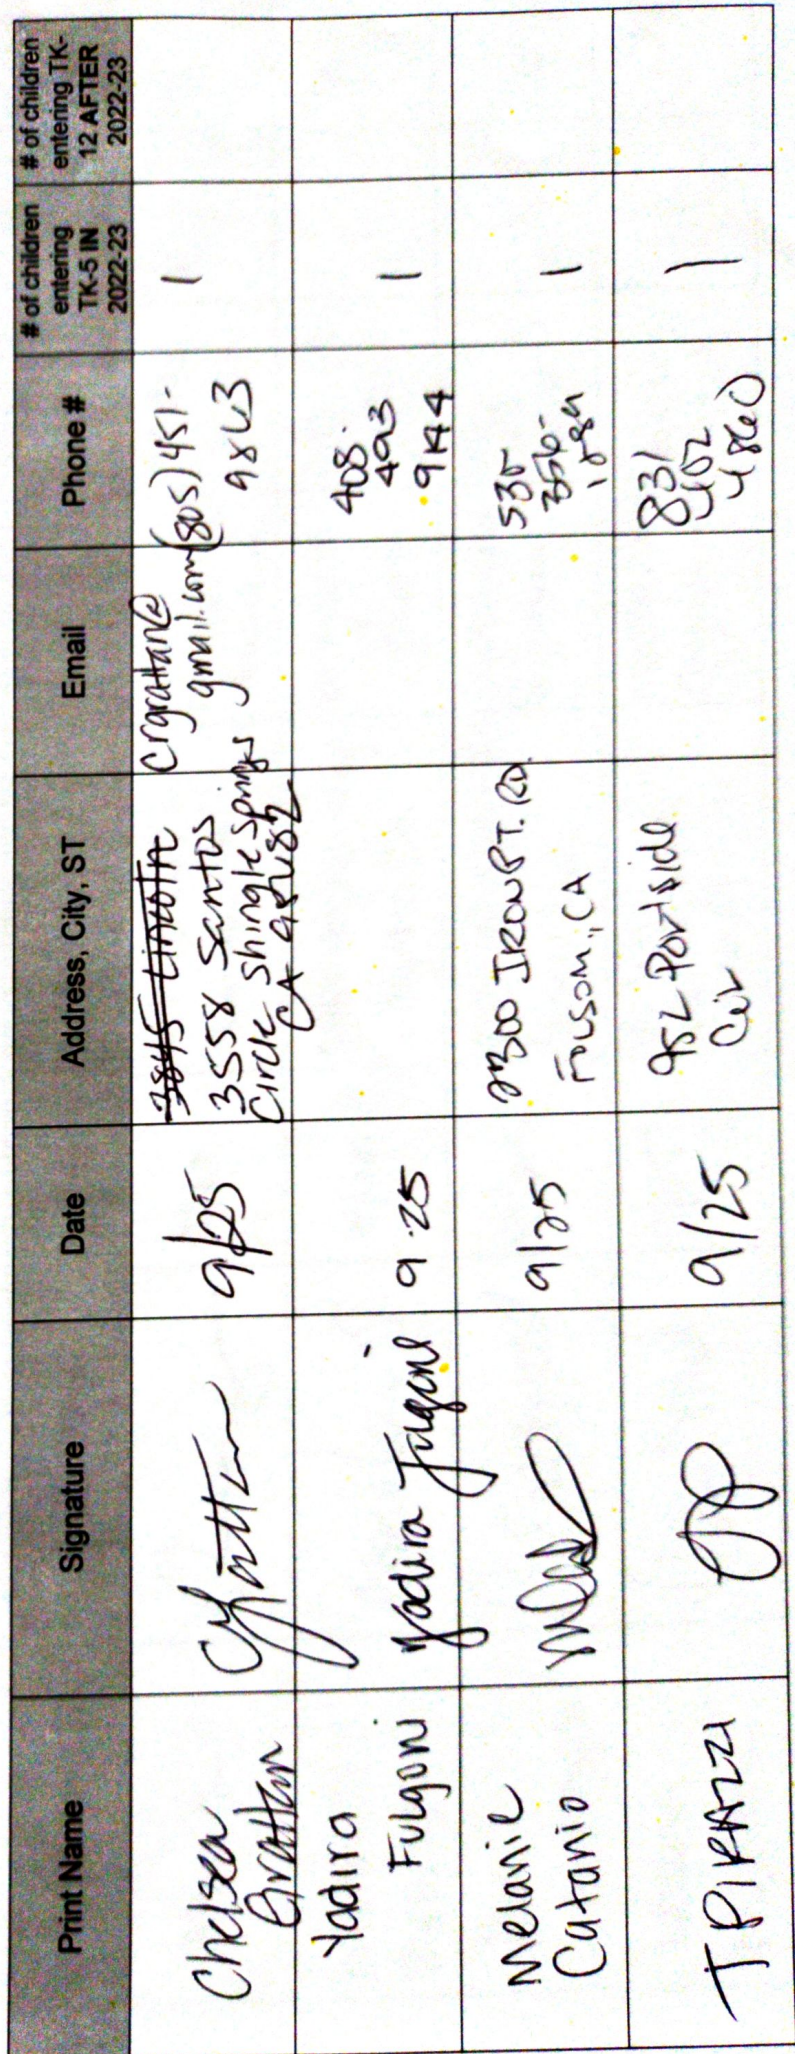 Print Name
Signature
Date
Address, City, ST
Email
Phone #
# of children
entering
TK-5 IN
2022-23
# of children
entering TK-
12 AFTER
2022-23
Chelsea
Grattan
9/25
3558 Santos
Circle Shingle Springs
CA
crgrattan@
gmail.com
(805) 451-
1
Yadira
Fulgoni
Yadira Fulgoni
9.25
408.
493
9144
1
Melanie
Catanio
9/25
2300 IRON PT. RD.
FOLSOM, CA
530-
356-
1
T PIRAZZI
9/25
952 Portside
Cir
831
402
4860
1